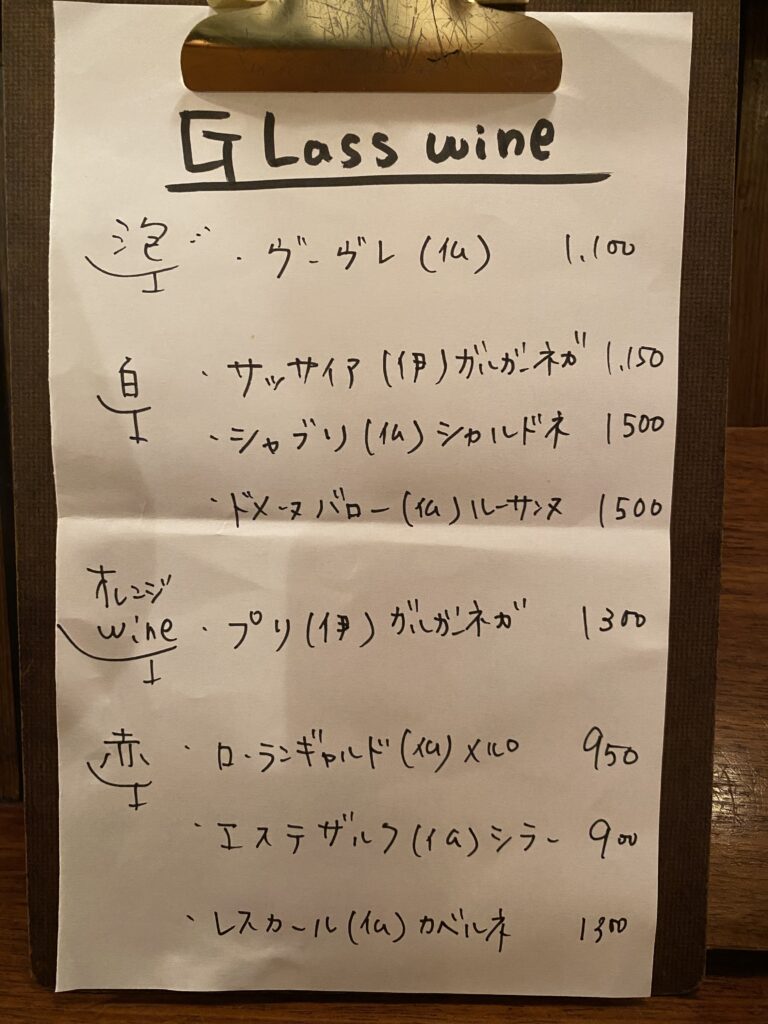 GLass wine
泡 ・ヴーヴレ(仏) 1,100
白 ・サッサイア(伊)ガルガーネガ 1,150
・シャブリ(仏)シャルドネ 1500
・ドメーヌバロー(仏)ルーサンヌ 1500
オレンジ
wine ・プリ(伊)ガルガーネガ 1300
赤 ・ローランギャルド(仏)メルロ 950
・エステザルク(仏)シラー 900
・レスカール(仏)カベルネ 1300